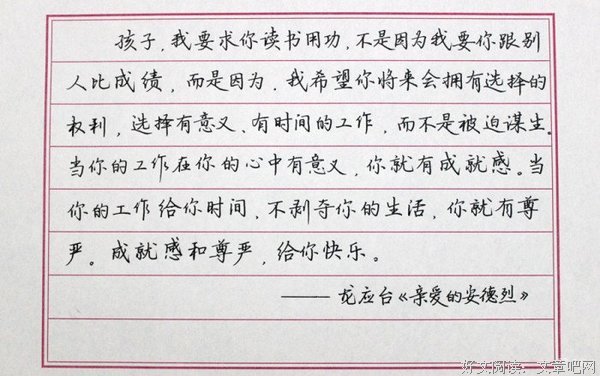 孩子，我要求你读书用功，不是因为我要你跟别
人比成绩，而是因为，我希望你将来会拥有选择的
权利，选择有意义、有时间的工作，而不是被迫谋生。
当你的工作在你的心中有意义，你就有成就感。当
你的工作给你时间，不剥夺你的生活，你就有尊
严。成就感和尊严，给你快乐。
——龙应台《亲爱的安德烈》
好文阅读：文章吧网